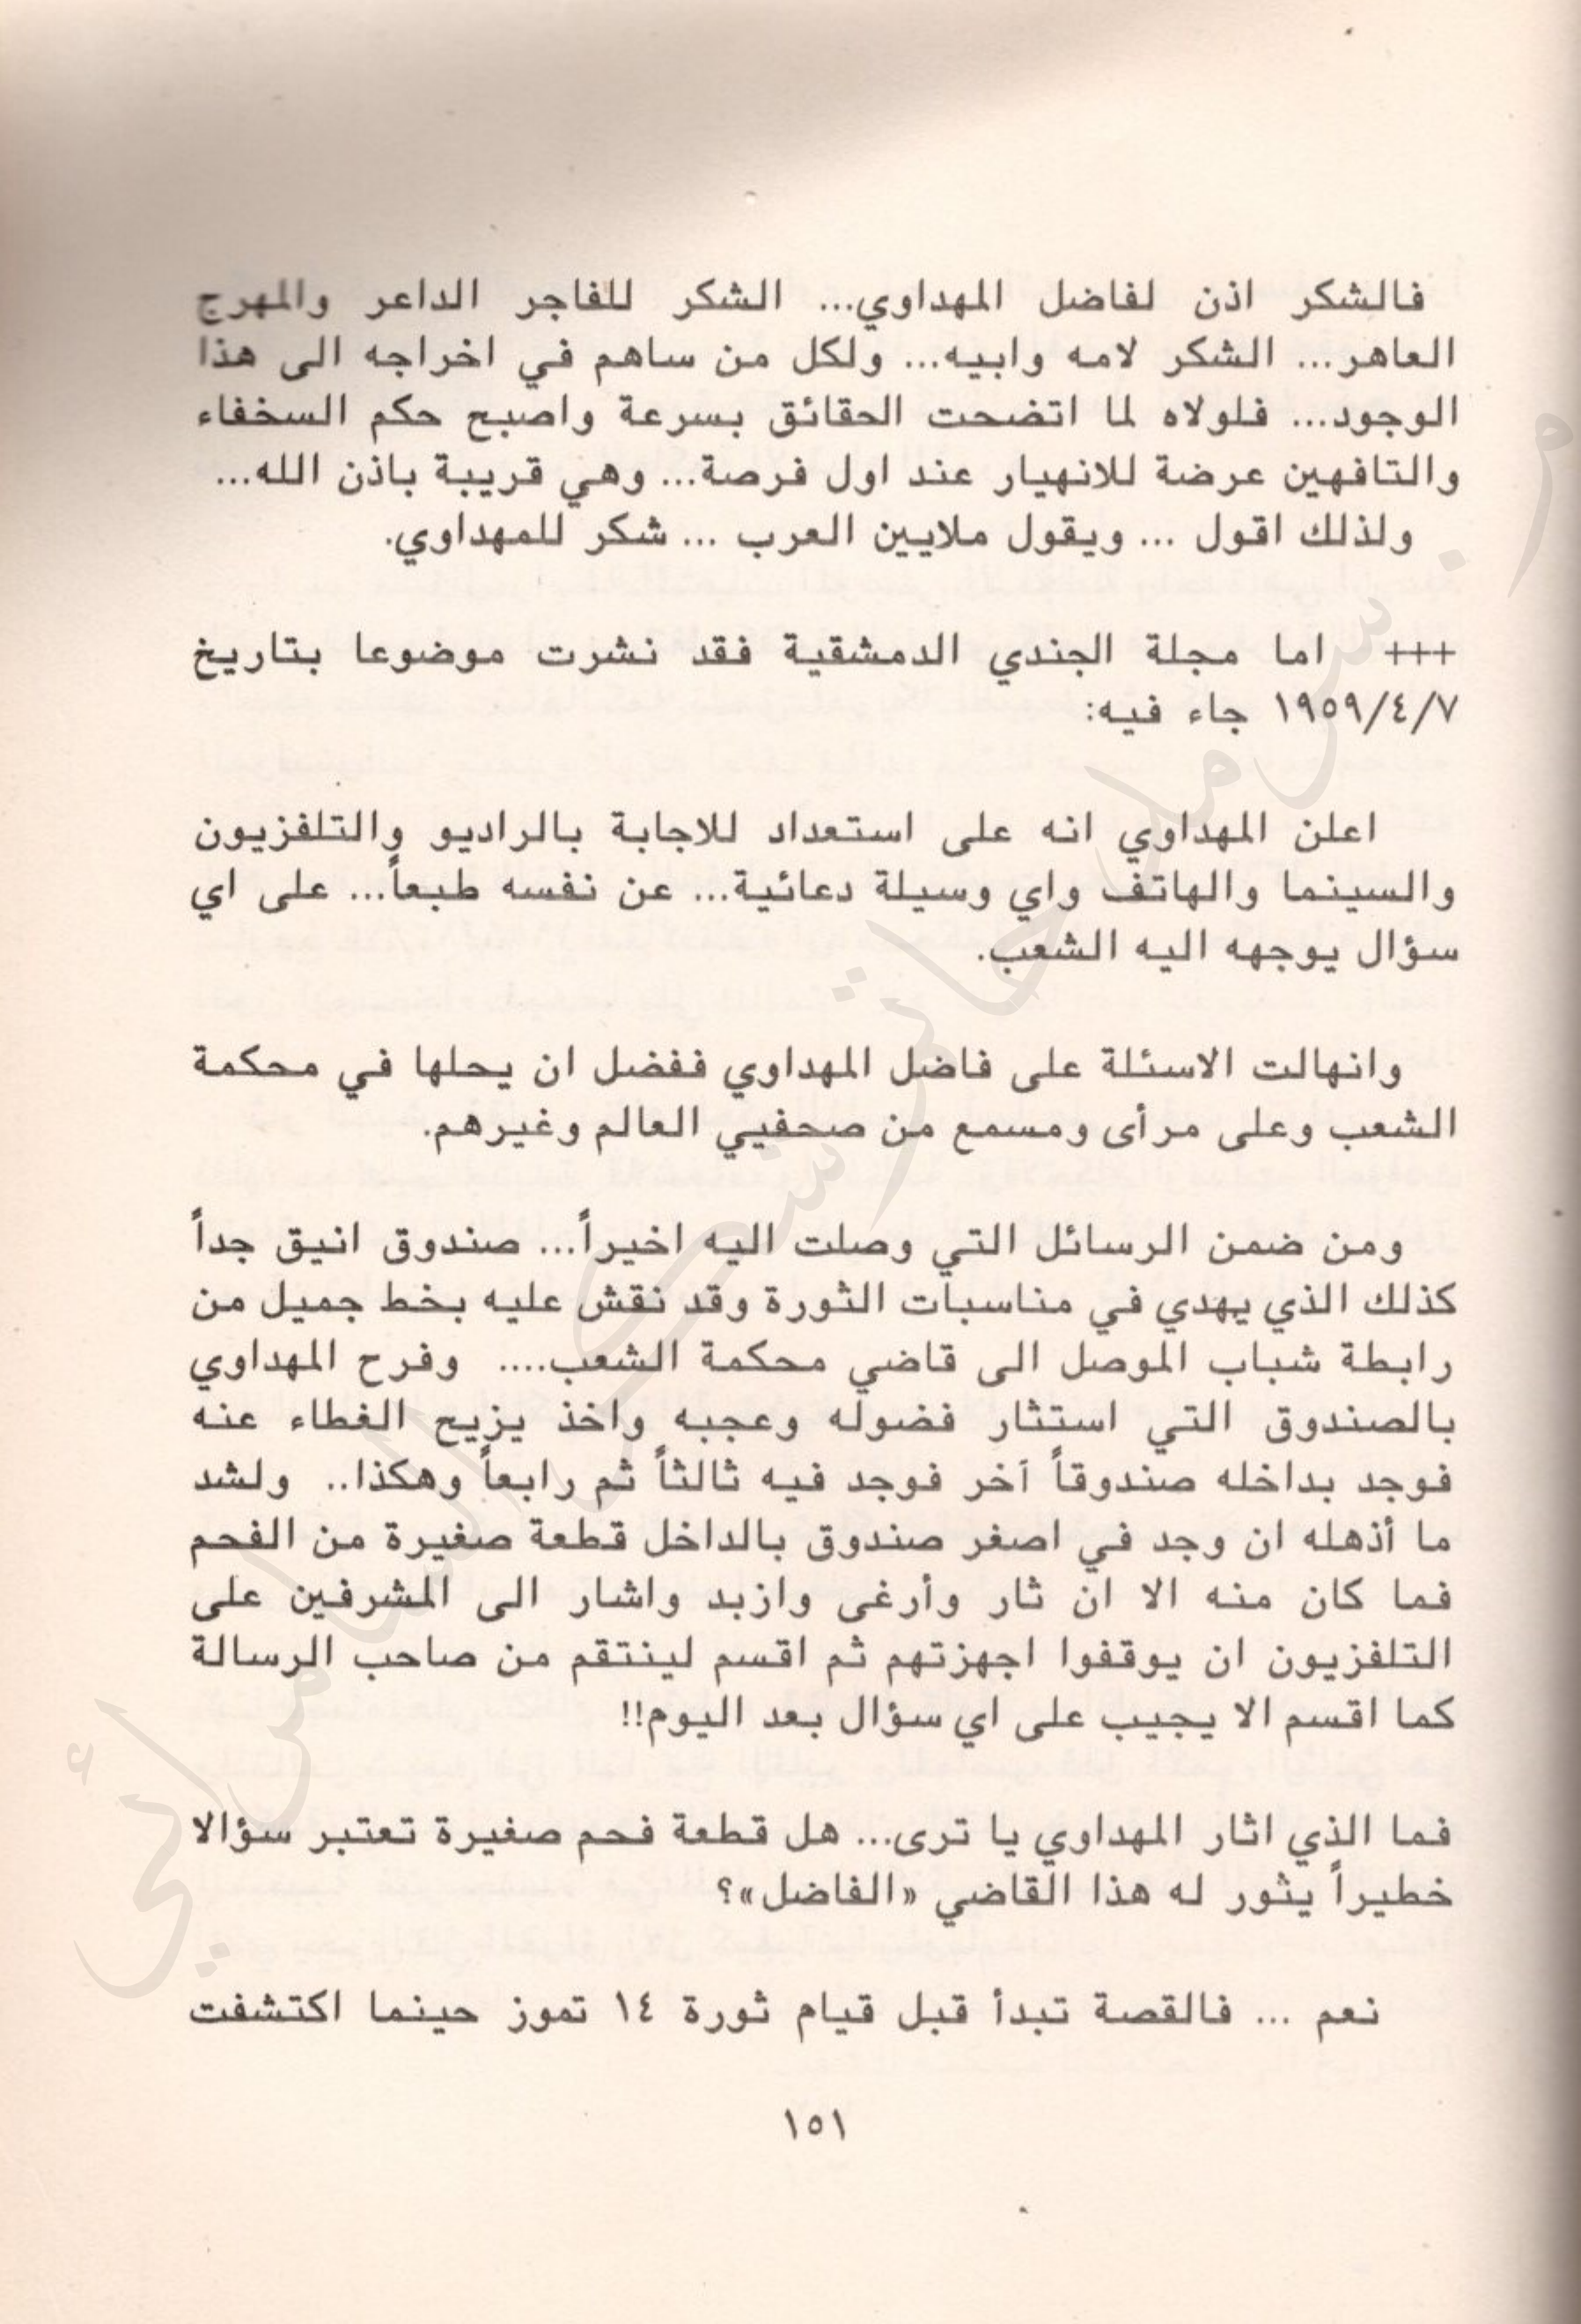 فالشكر اذن لفاضل المهداوي... الشكر للفاجر الداعر والمهرج
العاهر... الشكر لامه وابيه... ولكل من ساهم في اخراجه الى هذا
الوجود... فلولاه لما اتضحت الحقائق بسرعة واصبح حكم السخفاء
والتافهين عرضة للانهيار عند اول فرصة... وهي قريبة باذن الله...
ولذلك اقول ... ويقول ملايين العرب ... شكر للمهداوي.
+++ اما مجلة الجندي الدمشقية فقد نشرت موضوعا بتاريخ
١٩٥٩/٤/٧ جاء فيه:
اعلن المهداوي انه على استعداد للاجابة بالراديو والتلفزيون
والسينما والهاتف واي وسيلة دعائية... عن نفسه طبعاً... على اي
سؤال يوجهه اليه الشعب.
وانهالت الاسئلة على فاضل المهداوي ففضل ان يحلها في محكمة
الشعب وعلى مرأى ومسمع من صحفيي العالم وغيرهم.
ومن ضمن الرسائل التي وصلت اليه اخيراً... صندوق انيق جداً
كذلك الذي يهدي في مناسبات الثورة وقد نقش عليه بخط جميل من
رابطة شباب الموصل الى قاضي محكمة الشعب.... وفرح المهداوي
بالصندوق التي استثار فضوله وعجبه واخذ يزيح الغطاء عنه
فوجد بداخله صندوقاً آخر فوجد فيه ثالثاً ثم رابعاً وهكذا.. ولشد
ما أذهله ان وجد في اصغر صندوق بالداخل قطعة صغيرة من الفحم
فما كان منه الا ان ثار وأرغى وازبد واشار الى المشرفين على
التلفزيون ان يوقفوا اجهزتهم ثم اقسم لينتقم من صاحب الرسالة
كما اقسم الا يجيب على اي سؤال بعد اليوم!!
فما الذي اثار المهداوي يا ترى... هل قطعة فحم صغيرة تعتبر سؤالا
خطيراً يثور له هذا القاضي «الفاضل»؟
نعم ... فالقصة تبدأ قبل قيام ثورة ١٤ تموز حينما اكتشفت
١٥١